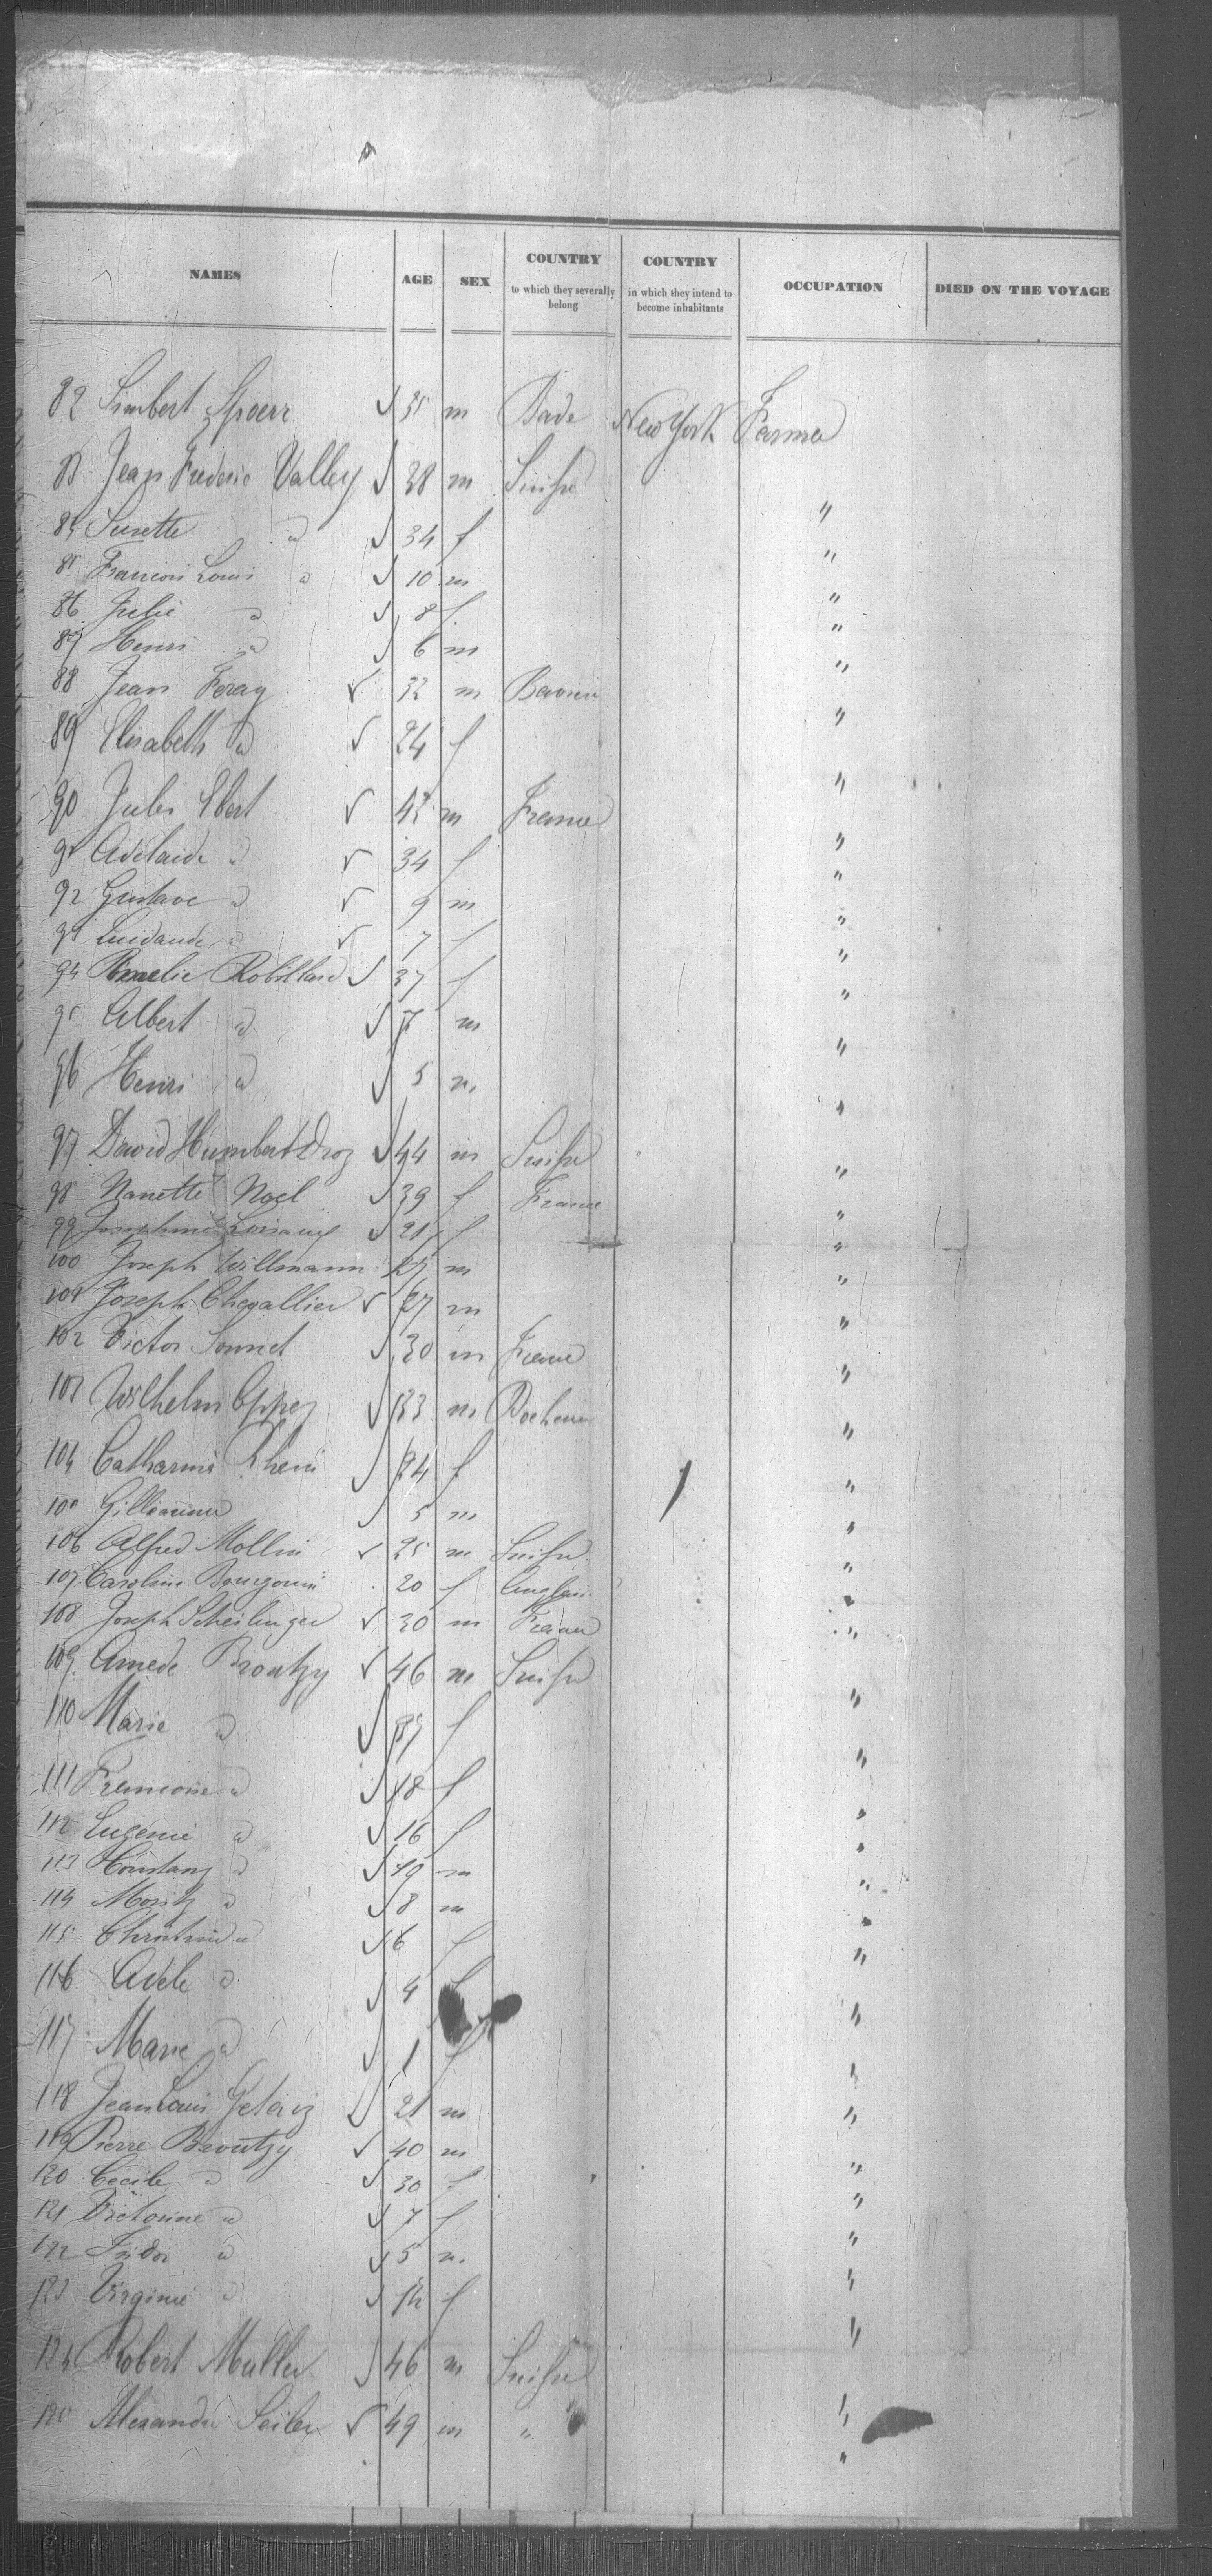 NAMES AGE SEX COUNTRY to which they severally belong COUNTRY in which they intend to become inhabitants OCCUPATION DIED ON THE VOYAGE
82 Simbert Spoerr 35 m Bade New York Farmer
83 Jean Frederic Valley 38 m Suisse "
84 Susette d 34 f "
85 Francois Louis d 10 m "
86 Julie d 8 f "
87 Henri d 6 m "
88 Jean Feray 32 m Baviere "
89 Elisabeth d 24 f "
90 Jules Ebert 42 m France "
91 Adelaide d 34 f "
92 Gustave d 9 m "
93 d 7 f "
94 Amelie Robillard 37 f "
95 Albert d 7 m "
96 Henri d 5 m "
97 David Humbert Droz 44 m Suisse "
98 Nanette Noel 39 f France "
99 Josephine 21 f "
100 Joseph Willmann 27 m "
101 Joseph Chevallier 27 m "
102 Victor Sonnet 30 m France "
103 Wilhelm Eppez 33 m "
104 Catharine 24 f "
105 5 m "
106 Alfred Mollin 25 m Suisse "
107 Caroline 20 f "
108 Joseph Scheilinger 30 m France "
109 Amede Broutzy 46 m Suisse "
110 Marie d 39 f "
111 Francoise d 18 f "
112 Eugenie d 16 f "
113 d 10 m "
114 Moritz d 8 m "
115 Christine d 6 f "
116 Adele d 4 f "
117 Marie d 1 f "
118 Jean Louis Getaz 21 m "
119 Pierre Broutzy 40 m "
120 Cecile d 30 f "
121 Victorine d 7 f "
122 Isidor d 5 m "
123 Virginie d f "
124 Robert Muller 46 m Suisse "
125 Alexandre Seiler 49 m " "